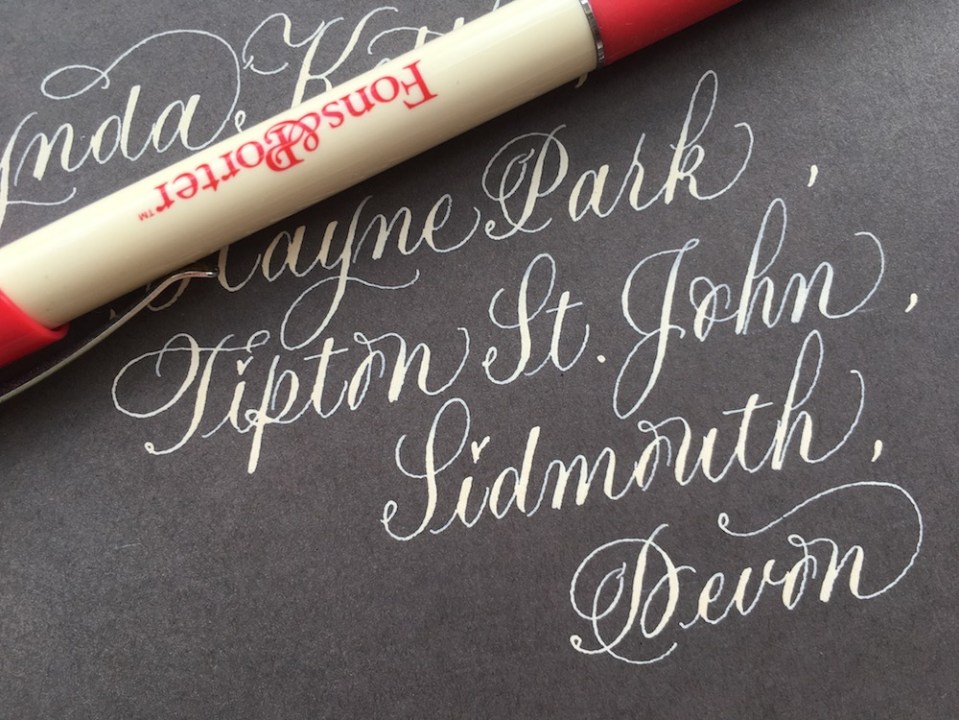 Fons&Porter™
Park,
Tipton St. John,
Sidmouth,
Devon